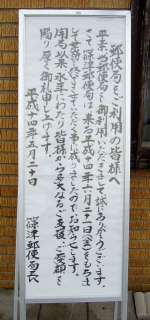 郵便局をご利用の皆様へ
平素、当郵便局をご利用いただきまして誠にありがとうございます。
さて、篠津郵便局は来る平成十四年六月二十一日(金)をもちま
して営業を
開局以来永年にわたり皆様から多大なるご支援、ご愛顧を
賜り厚く御礼申し上げます。
平成十四年五月二十日
篠津郵便局長